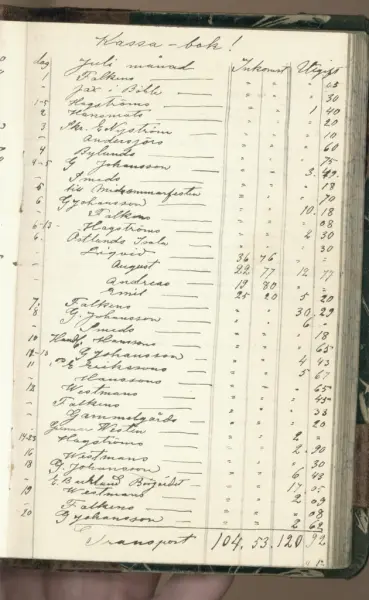 Kassa-bok!
dag Juli månad Inkomst Utgift
1 Falkens " "
Jax i Bihle " " 30
1-5 Hagströms " " 1 40
2 Hansmats " " " 20
3 Ska. E. Nyström " " " 10
" Anderssors " " " 60
4 Bylunds " " " 75
4-5 G Johansson " " 3. 49
" Smeds " " " 18
5 till Midsommarfesten " " " 70
6 G Johansson " " 10. 18
" Falkens " " " 08
6-13 Hagströms " " 2 30
" Östlunds " " " 30
Liqvid 36 76
August 22 77 12 77
Andreas 19 80
Emil 25 20 5 20
7. Falkens " " 30. 29
8 G. Johansson " " 6 "
" Smeds " " " 18
10 Hanssons " " " 65
12-13 G Johansson " " 4 43
11 E Erikssons " " 5 67
" Hanssons " " " 65
12 Westmans " " " 45
" Falkens " " " 38
" Gammelgårds " " " 20
Gunnar Westen " " 2 "
14-23 Hagströms " " 2. 90
16 Westmans " " " 30
18 G. Johansson " " 6 48
" E. Beckland 17
19 Westmans " " 2 09
" Falkens " " " 08
20 G Johansson " " 2 62
Transport 104, 53, 120 92